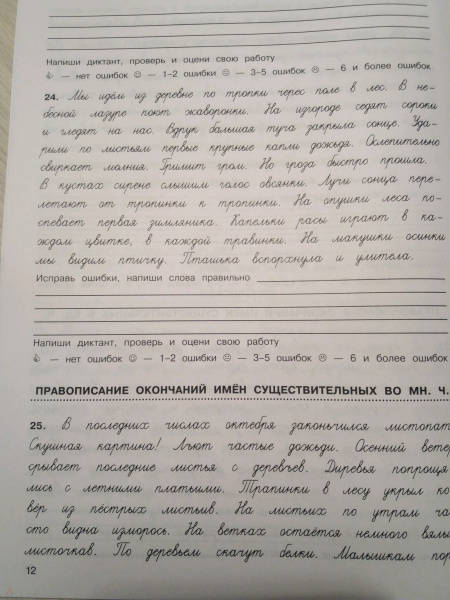 Напиши диктант, проверь и оцени свою работу
— нет ошибок ☺ — 1–2 ошибки 😐 — 3–5 ошибок ☹ — 6 и более ошибок
24. Мы идём из деревне по тропки черес поле в лес. В не-
бесной лазуре поют жаворонки. На изгороде седят сороки
и гледят на нас. Вдрук балшая туча закрыла сонце. Уда-
рили по листьям первые крупные капли дождя. Ослепительно
свиркает молния. Гримит гром. Но гроза быстро прошла.
В кустах сирене слышим голос овсянки. Лучи сонца пере-
летают от тропинки к тропинки. На опушки леса по-
спевает первая зимляника. Капельки расы играют в ка-
ждом цвитке, в каждой травинки. На макушки осинки
мы видим птичку. Пташька вспорхнула и улитела.
Исправь ошибки, напиши слова правильно
Напиши диктант, проверь и оцени свою работу
— нет ошибок ☺ — 1–2 ошибки 😐 — 3–5 ошибок ☹ — 6 и более ошибок
ПРАВОПИСАНИЕ ОКОНЧАНИЙ ИМЁН СУЩЕСТВИТЕЛЬНЫХ ВО МН. Ч.
25. В последних числах октебря законьчился листопат
Скушная картина! Льют частые дожьди. Осенний ветер
срывает последние листья с деревъев. Диревья попроща
лись с летними платьими. Трапинки в лесу укрыл ко
вёр из пёстрых листьив. На листьих по утрам ча
сто видна изморось. На ветках остаётся немного вялы
листочкав. По деревьем скачут белки. Малышкам пор
12